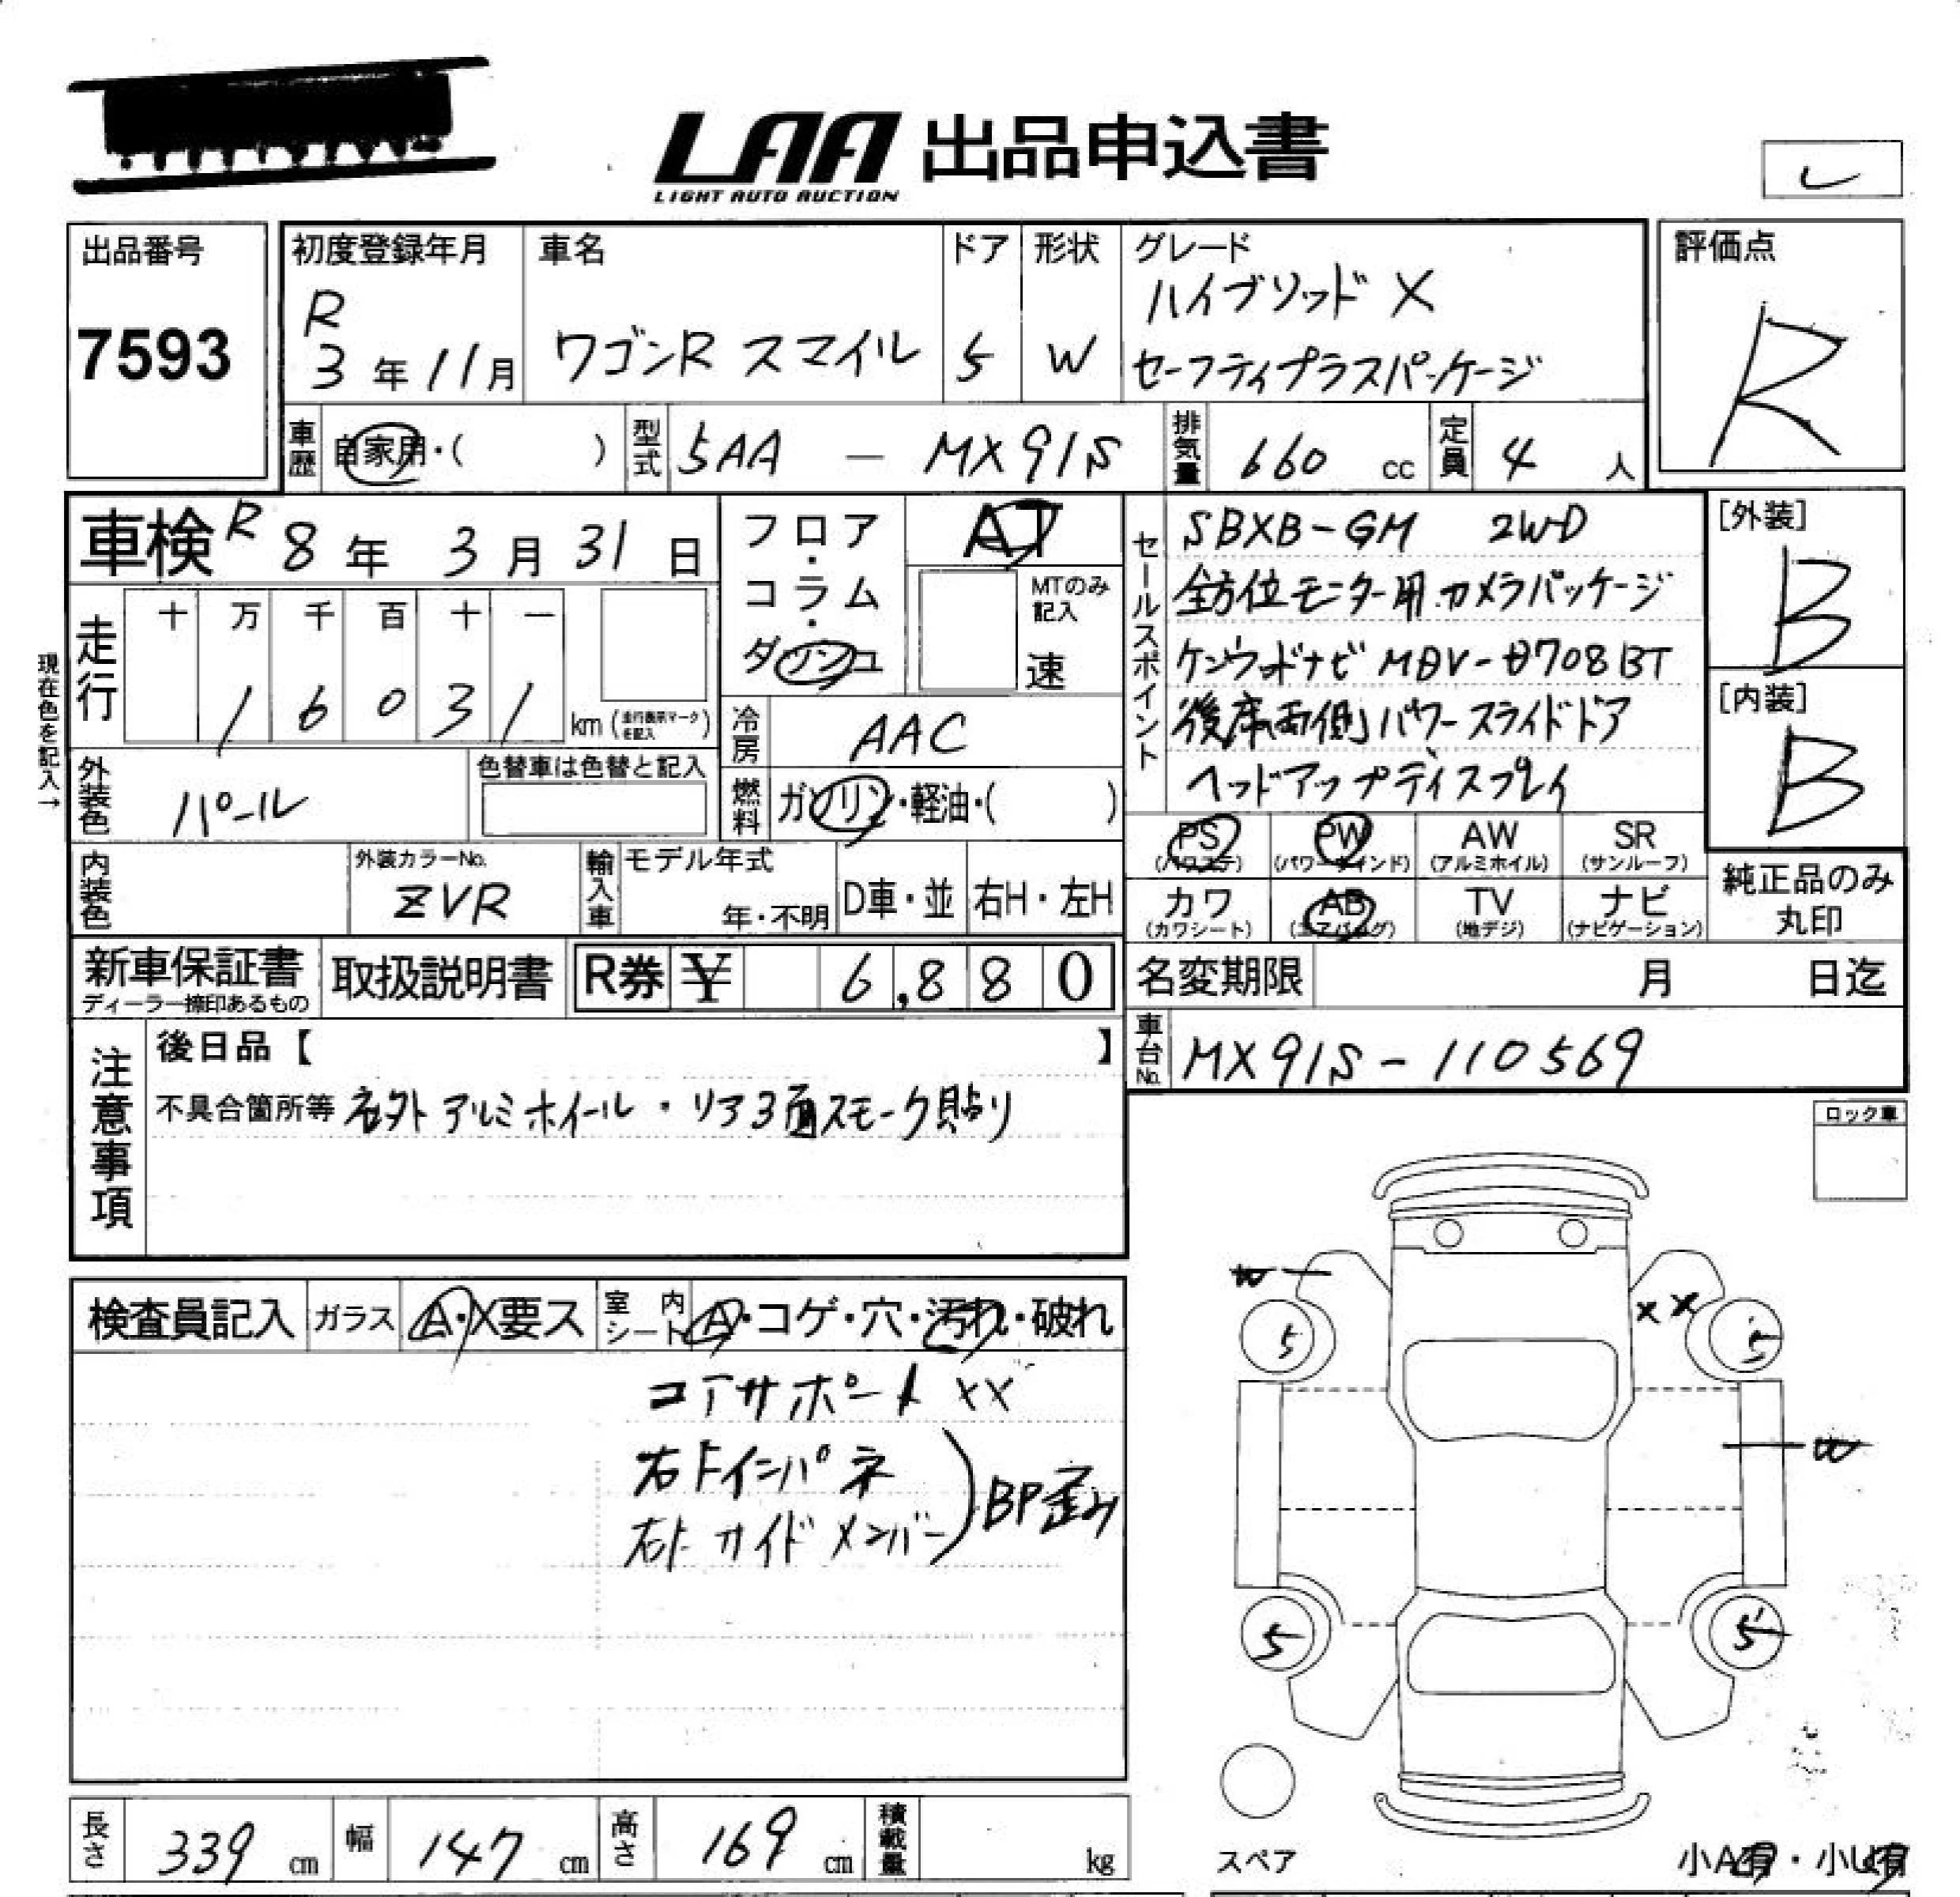 LAA 出品申込書
LIGHT AUTO AUCTION
レ
出品番号
7593
初度登録年月
R
3年11月
車名
ワゴンR スマイル
ドア
5
形状
W
グレード
ハイブリッド X
セーフティプラスパッケージ
評価点
R
車歴 自家用・( )
型式 5AA - MX91S
排気量 660 cc
定員 4 人
車検 R 8年 3月 31日
フロア・コラム・ダ
AT
MTのみ記入
速
現在色を記入→
走行
十 万 千 百 十 一
1 6 0 3 1
km (走行表示マークを記入)
冷房 AAC
外装色 パール
色替車は色替と記入
燃料 ガソリン・軽油・( )
内装色
外装カラーNo.
ZVR
輸入車
モデル年式
年・不明
D車・並
右H・左H
セールスポイント
SBXB-GM 2WD
全方位モニター用カメラパッケージ
ケンウッドナビ
後席両側パワースライドドア
ヘッドアップディスプレイ
[外装]
B
[内装]
B
PS (パワステ)
PW (パワーウインド)
AW (アルミホイル)
SR (サンルーフ)
カワ (カワシート)
AB (エアバッグ)
TV (地デジ)
ナビ (ナビゲーション)
純正品のみ
丸印
新車保証書
ディーラー捺印あるもの
取扱説明書
R券 ¥ 6,880
名変期限 月 日迄
車台No. MX91S-110569
注意事項
後日品【 】
不具合箇所等 社外アルミホイール・リア3面スモーク貼り
ロック車
検査員記入 ガラス A・X要ス 室内シート A・コゲ・穴・汚れ・破れ
コアサポート XX
右Fインパネ
右Fサイドメンバー
BP歪み
W
XX
5
5
W
5
5
スペア
小A有・小U有
長さ 339 cm 幅 147 cm 高さ 169 cm 積載量 kg